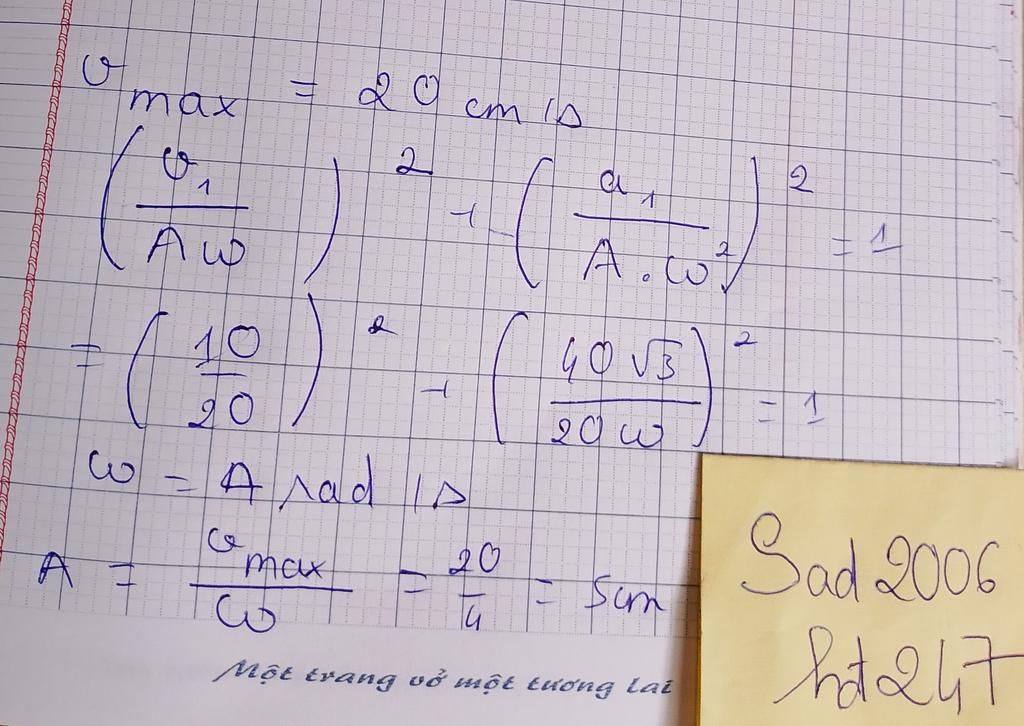 v max = 20 cm/s
(v₁/Aω)² + (a₁/A.ω²)² = 1
= (10/20)² + (40√3/20ω)² = 1
ω = A rad/s
A = v max/ω = 20/4 = 5cm
Một trang vở một tương lai
Sad2006
hd247